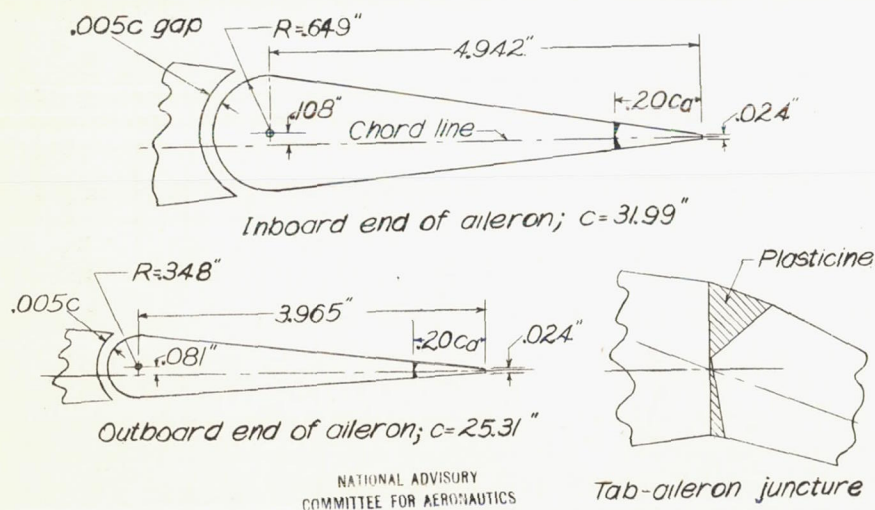 .005c gap
R=.649"
4.942"
.108"
.20ca
.024"
Chord line
Inboard end of aileron; c=31.99"
R=.348"
.005c
3.965"
.20ca
.024"
.081"
Outboard end of aileron; c=25.31"
Plasticine
Tab-aileron juncture
NATIONAL ADVISORY
COMMITTEE FOR AERONAUTICS